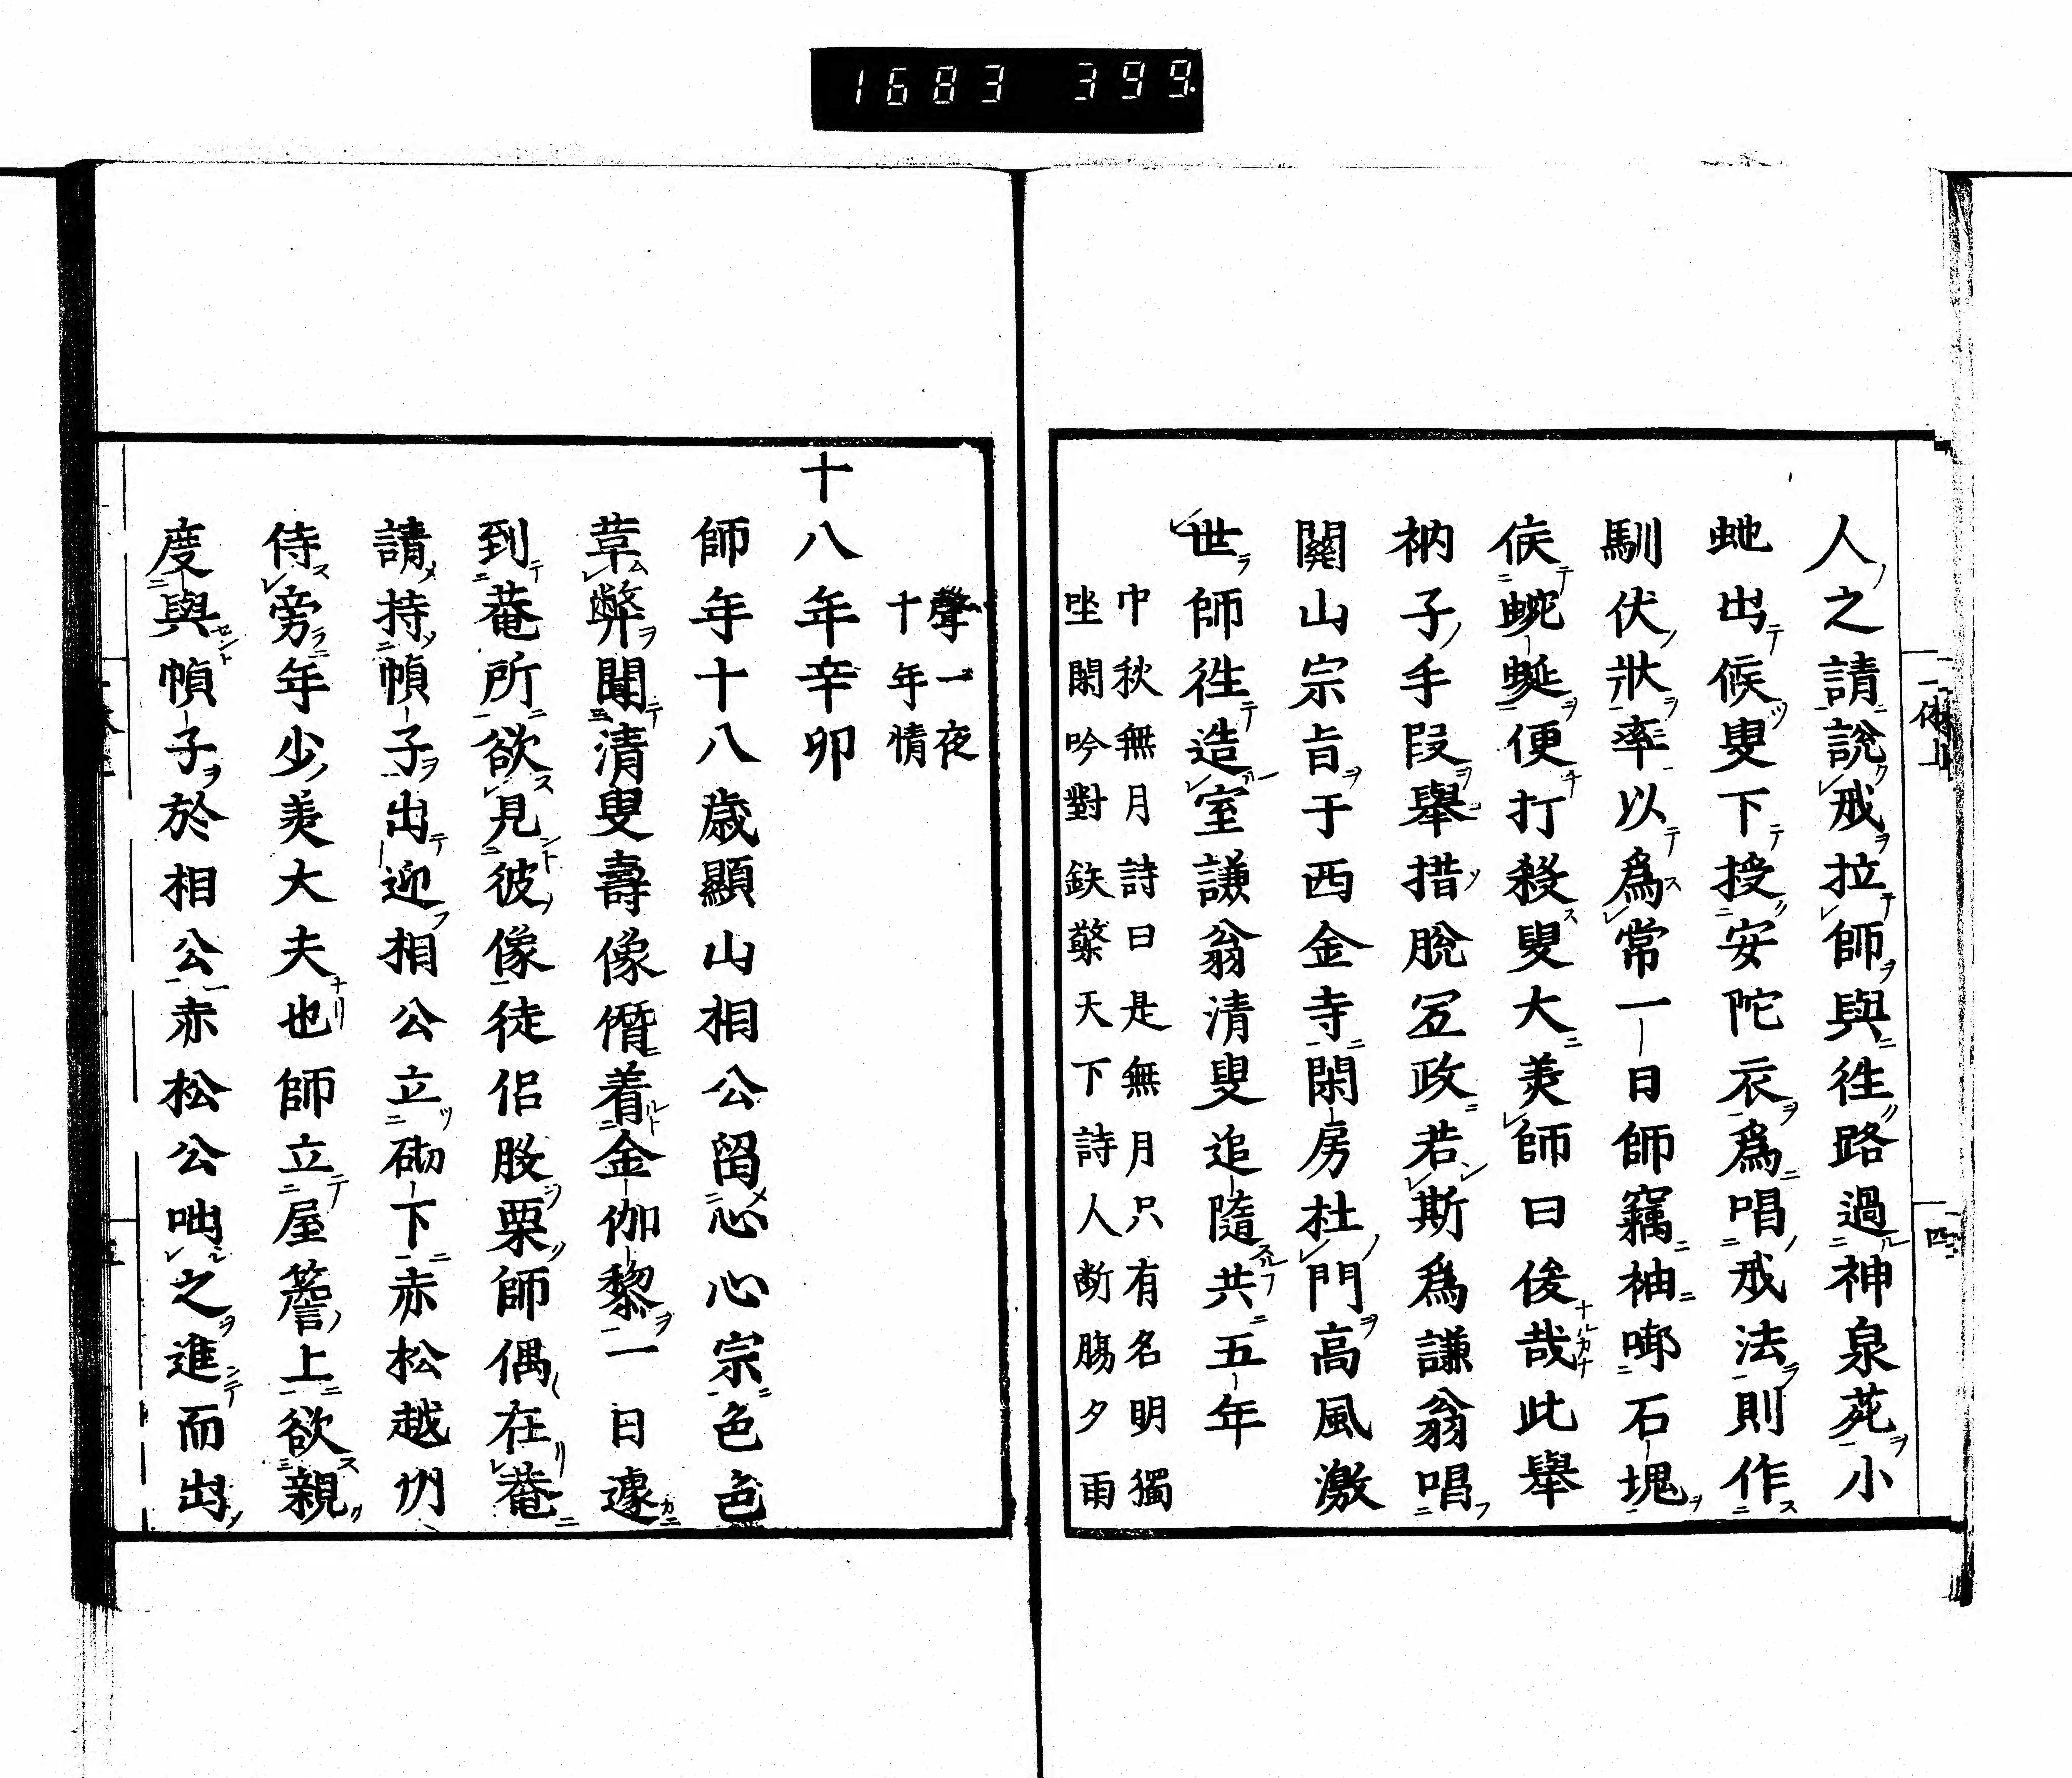 1683 399.
人之請說戒拉師與往路過神泉苑小
虵出候叟下授安陀衣爲唱戒法則作
馴伏狀率以爲常一日師竊袖啣石塊
候蜿蜒便打殺叟大笑師曰俊哉此舉
衲子手段舉措脫冝政若斯爲謙翁唱
關山宗旨于西金寺閑房杜門高風激
世師往造室謙翁清叟追隨共五年
中秋無月詩曰是無月只有名明獨
坐閑吟對鉄檠天下詩人断膓夕雨
聲一夜
十年情
十八年辛卯
師年十八歳顯山相公留心心宗色色
革弊聞清叟壽像僭着金伽黎一日遽
到菴所欲見彼像徒侶股栗師偶在菴
請持幀子出迎相公立砌下赤松越州
侍旁年少美大夫也師立屋簷上欲親
度與幀子於相公赤松公咄之進而出